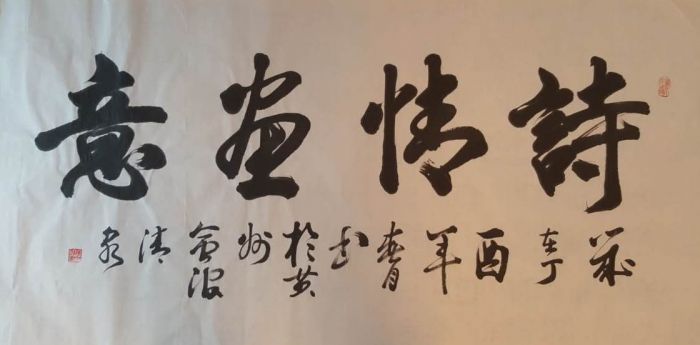 詩情畫意
歲在丁酉年春月書於黄州
清